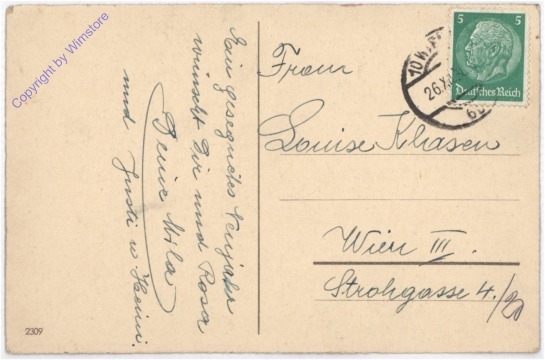 Copyright by Wimstore
Ein gesegnetes Neujahr
wünscht Dir und Rosa
Deine Mila
und Justi u Heini.
2309
Frau
Louise Klasen
Wien III.
Strohgasse 4./20
5 5
Deutsches Reich
10 W
26.X